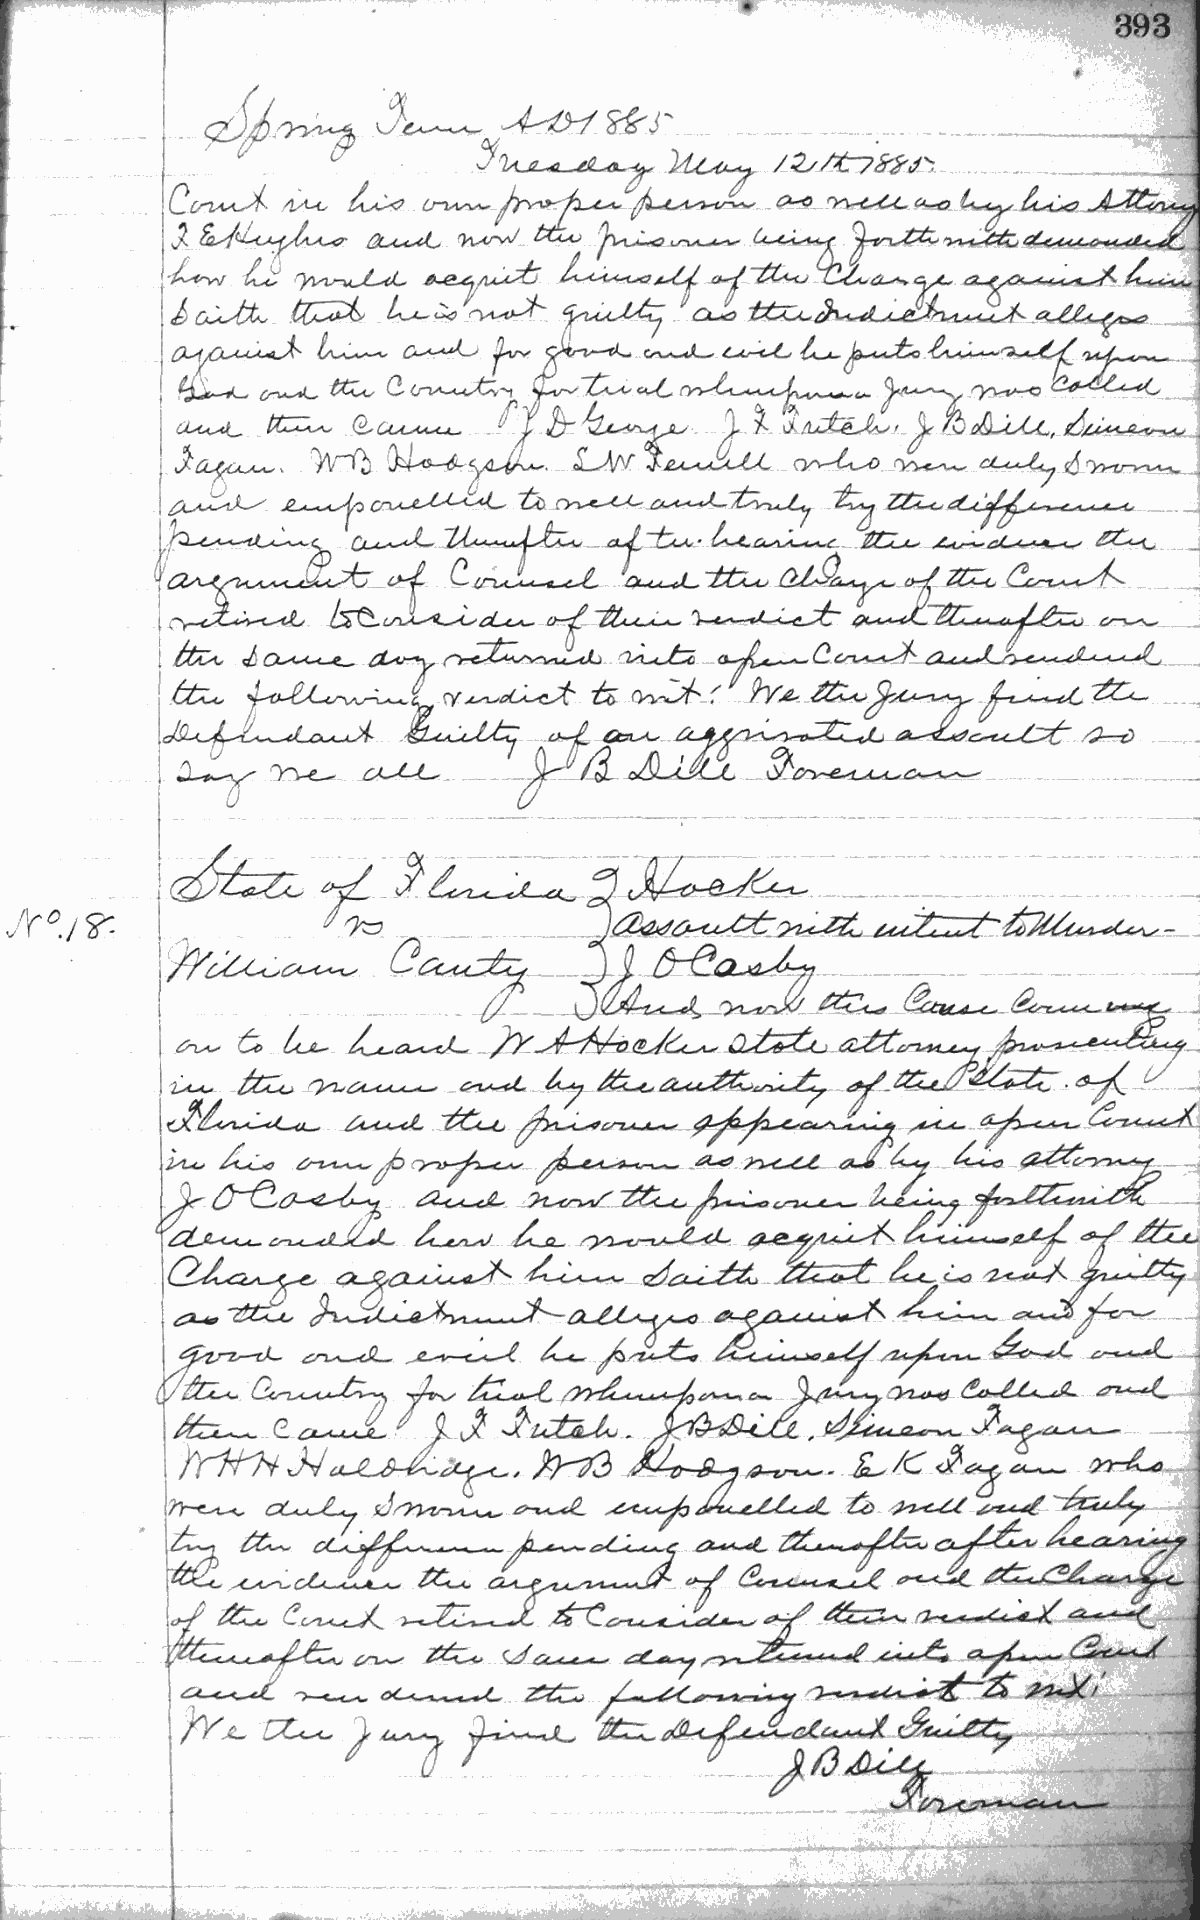 393
Spring Term AD 1885
Tuesday May 12th 1885.
Court in his own proper person as well as by his Attorney
F E Hughes and now the prisoner being forthwith demanded
how he would acquit himself of the Charge against him
Saith that he is not guilty as the Indictment alleges
against him and for good and evil he puts himself upon
God and the Country for trial whereupon a Jury was Called
and then Came J D George J F Futch. J B Dill. Simeon
Fagan. W B Hodgson. S W Ferrell who were duly Sworn
and empanelled to well and truly try the difference
pending and thereafter after hearing the evidence the
argument of Counsel and the Charge of the Court
retired to Consider of their verdict and thereafter on
the same day returned into open Court and rendered
the following verdict to wit: We the Jury find the
Defendant Guilty of an aggrivated assault so
say we all J B Dill Foreman
State of Florida } Hocker
No. 18. vs } Assault with intent to Murder -
William Canty } J O Casby
} And now this Cause Coming
on to be heard W A Hocker State attorney prosecuting
in the name and by the authority of the State of
Florida and the prisoner appearing in open Court
in his own proper person as well as by his attorney
J O Casby and now the prisoner being forthwith
demanded how he would acquit himself of the
Charge against him Saith that he is not guilty
as the Indictment alleges against him and for
good and evil he puts himself upon God and
the Country for trial whereupon a Jury was Called and
then Came J F Futch. J B Dill. Simeon Fagan
W H H Holdridge. W B Hodgson. E K Fagan who
were duly Sworn and empanelled to well and truly
try the difference pending and thereafter after hearing
the evidence the argument of Counsel and the Charge
of the Court retired to Consider of their verdict and
thereafter on the same day returned into open Court
and rendered the following verdict to wit:
We the Jury find the Defendant Guilty
J B Dill
Foreman